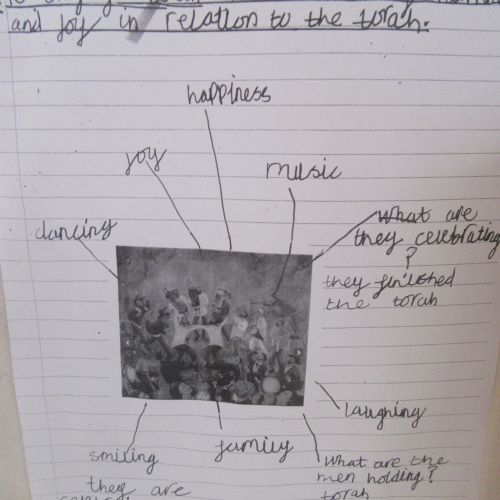 and joy in relation to the torah.
happiness
joy
music
dancing
What are
they celebrating
?
they finished
the torah
laughing
family
smiling
they are
What are the
men holding?
torah